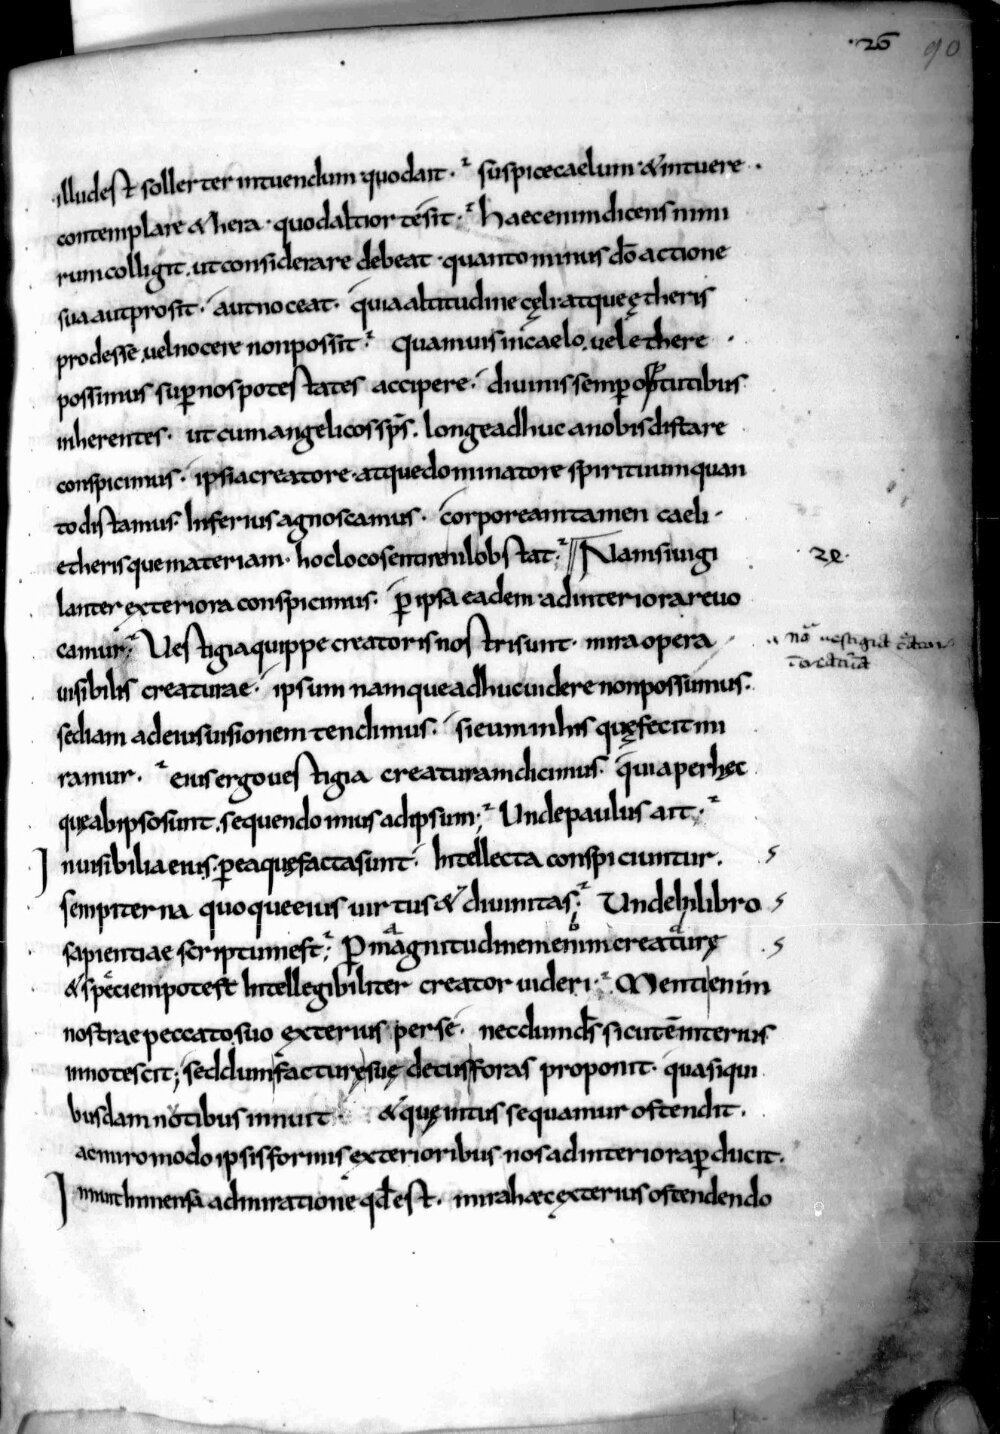 ·26 90
illudest sollerter intuendum quodait · suspicecaelum · &intuere ·
contemplare & hera · quodaltior tesit · haecenimdicens nimi
rumcolligit, ut considerare debeat · quanto minus dō actione
sua autprosit · autnoceat · quiaaltitudine cęli atque ętheris
prodesse, uelnocere nonpossit · quamuis incaelo, uel ethere ·
possimus sup̄nos potestates accipere · diuinis semp
inherentes · ut cum angelicos sp̄s, longe adhuc anobis distare
conspicimus · ipsi acreatore · atque dominatore spirituum quan
todistamus · Inferius agnoscamus · corpoream tamen caeli ·
etherisque materiam · hocloco sentire nilobstat · Nam siuigi
lanter exteriora conspicimus · p̄ ipsa eadem · adinteriora reuo
camur · Uestigia quippe creatoris nostri sunt · mira opera
uisibilis creaturae · ipsum namque adhuc uidere nonpossumus ·
sediam adeius uisionem tendimus · sieum inhis quę fecit mi
ramur · eius ergo uestigia creaturam dicimus · quia perhęc
quę abipso sunt, sequendo imus adipsum; Unde paulus ait ·
Inuisibilia eius · p̄ ea quę facta sunt · Intellecta conspiciuntur ·
sempiterna quoque eius uirtus & diuinitas; Unde Inlibro
sapientiae scriptum est; P̄ magnitudinem enim creaturę
& speciem potest Intellegibiliter creator uideri · Menti enim
nostrae peccato suo exterius perse · necdum ds̄ sicut ē interius
innotescit; seddum facturę suę decus foras proponit · quasi qui
busdam notibus innuit · & quę intus sequamur ostendit ·
ac miro modo ipsis formis exterioribus nos adinteriora p̄ducit ·
Innuit Inmensa admiratione qd̄ est · mira hæc exterius ostendendo